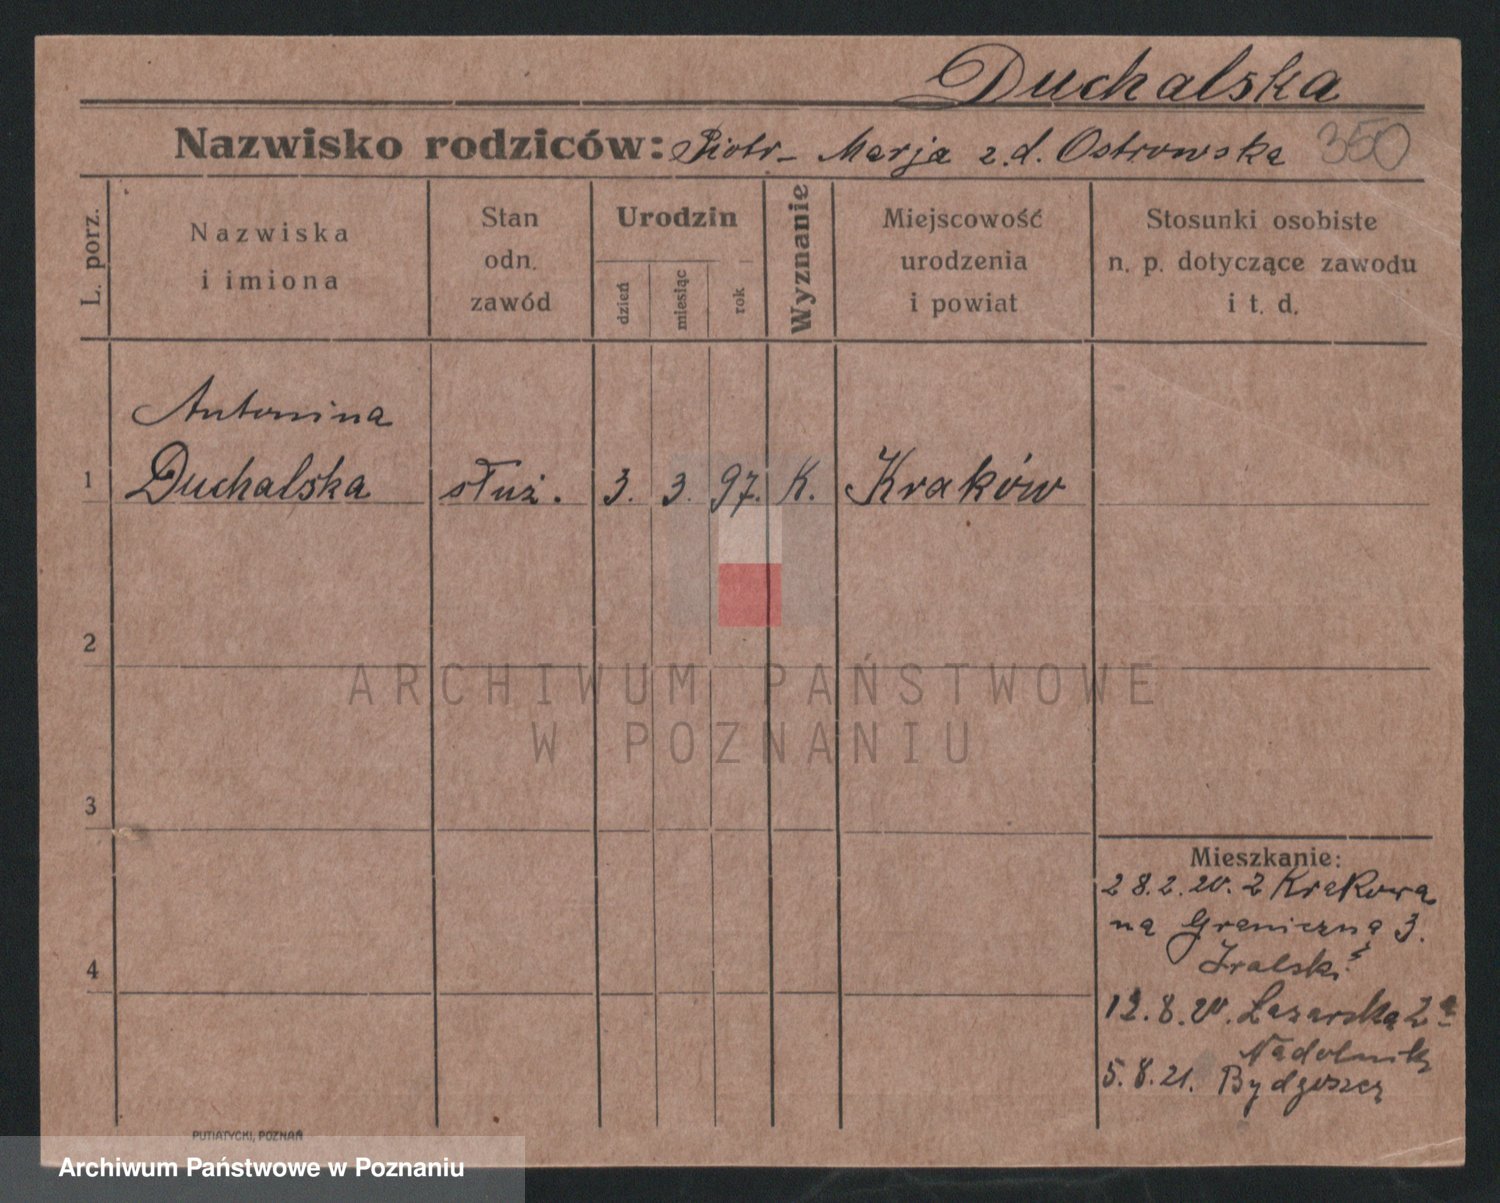 Duchalska
Nazwisko rodziców: Piotr - Marja z.d. Ostrowska 350
L. porz.
Nazwiska
i imiona
Stan
odn.
zawód
Urodzin
dzień
miesiąc
rok
Wyznanie
Miejscowość
urodzenia
i powiat
Stosunki osobiste
n. p. dotyczące zawodu
i t. d.
Antonina
1 Duchalska służ. 3. 3. 97. K. Kraków
2
ARCHIWUM PAŃSTWOWE
W POZNANIU
3
Mieszkanie:
28.2.20. z Krakowa
na Graniczną 3.
4
12.8.20. Łazarska 2a
Nadolnik
5.8.21. Bydgoszcz
PUTIATYCKI, POZNAŃ
Archiwum Państwowe w Poznaniu